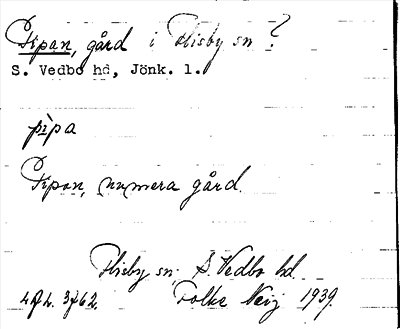 Pipan, gård i Flisby sn?
S. Vedbo hd, Jönk. l.
pìpa
Pipan, numera gård.
Flisby sn. S. Vedbo hd.
Folke Neij 1939.